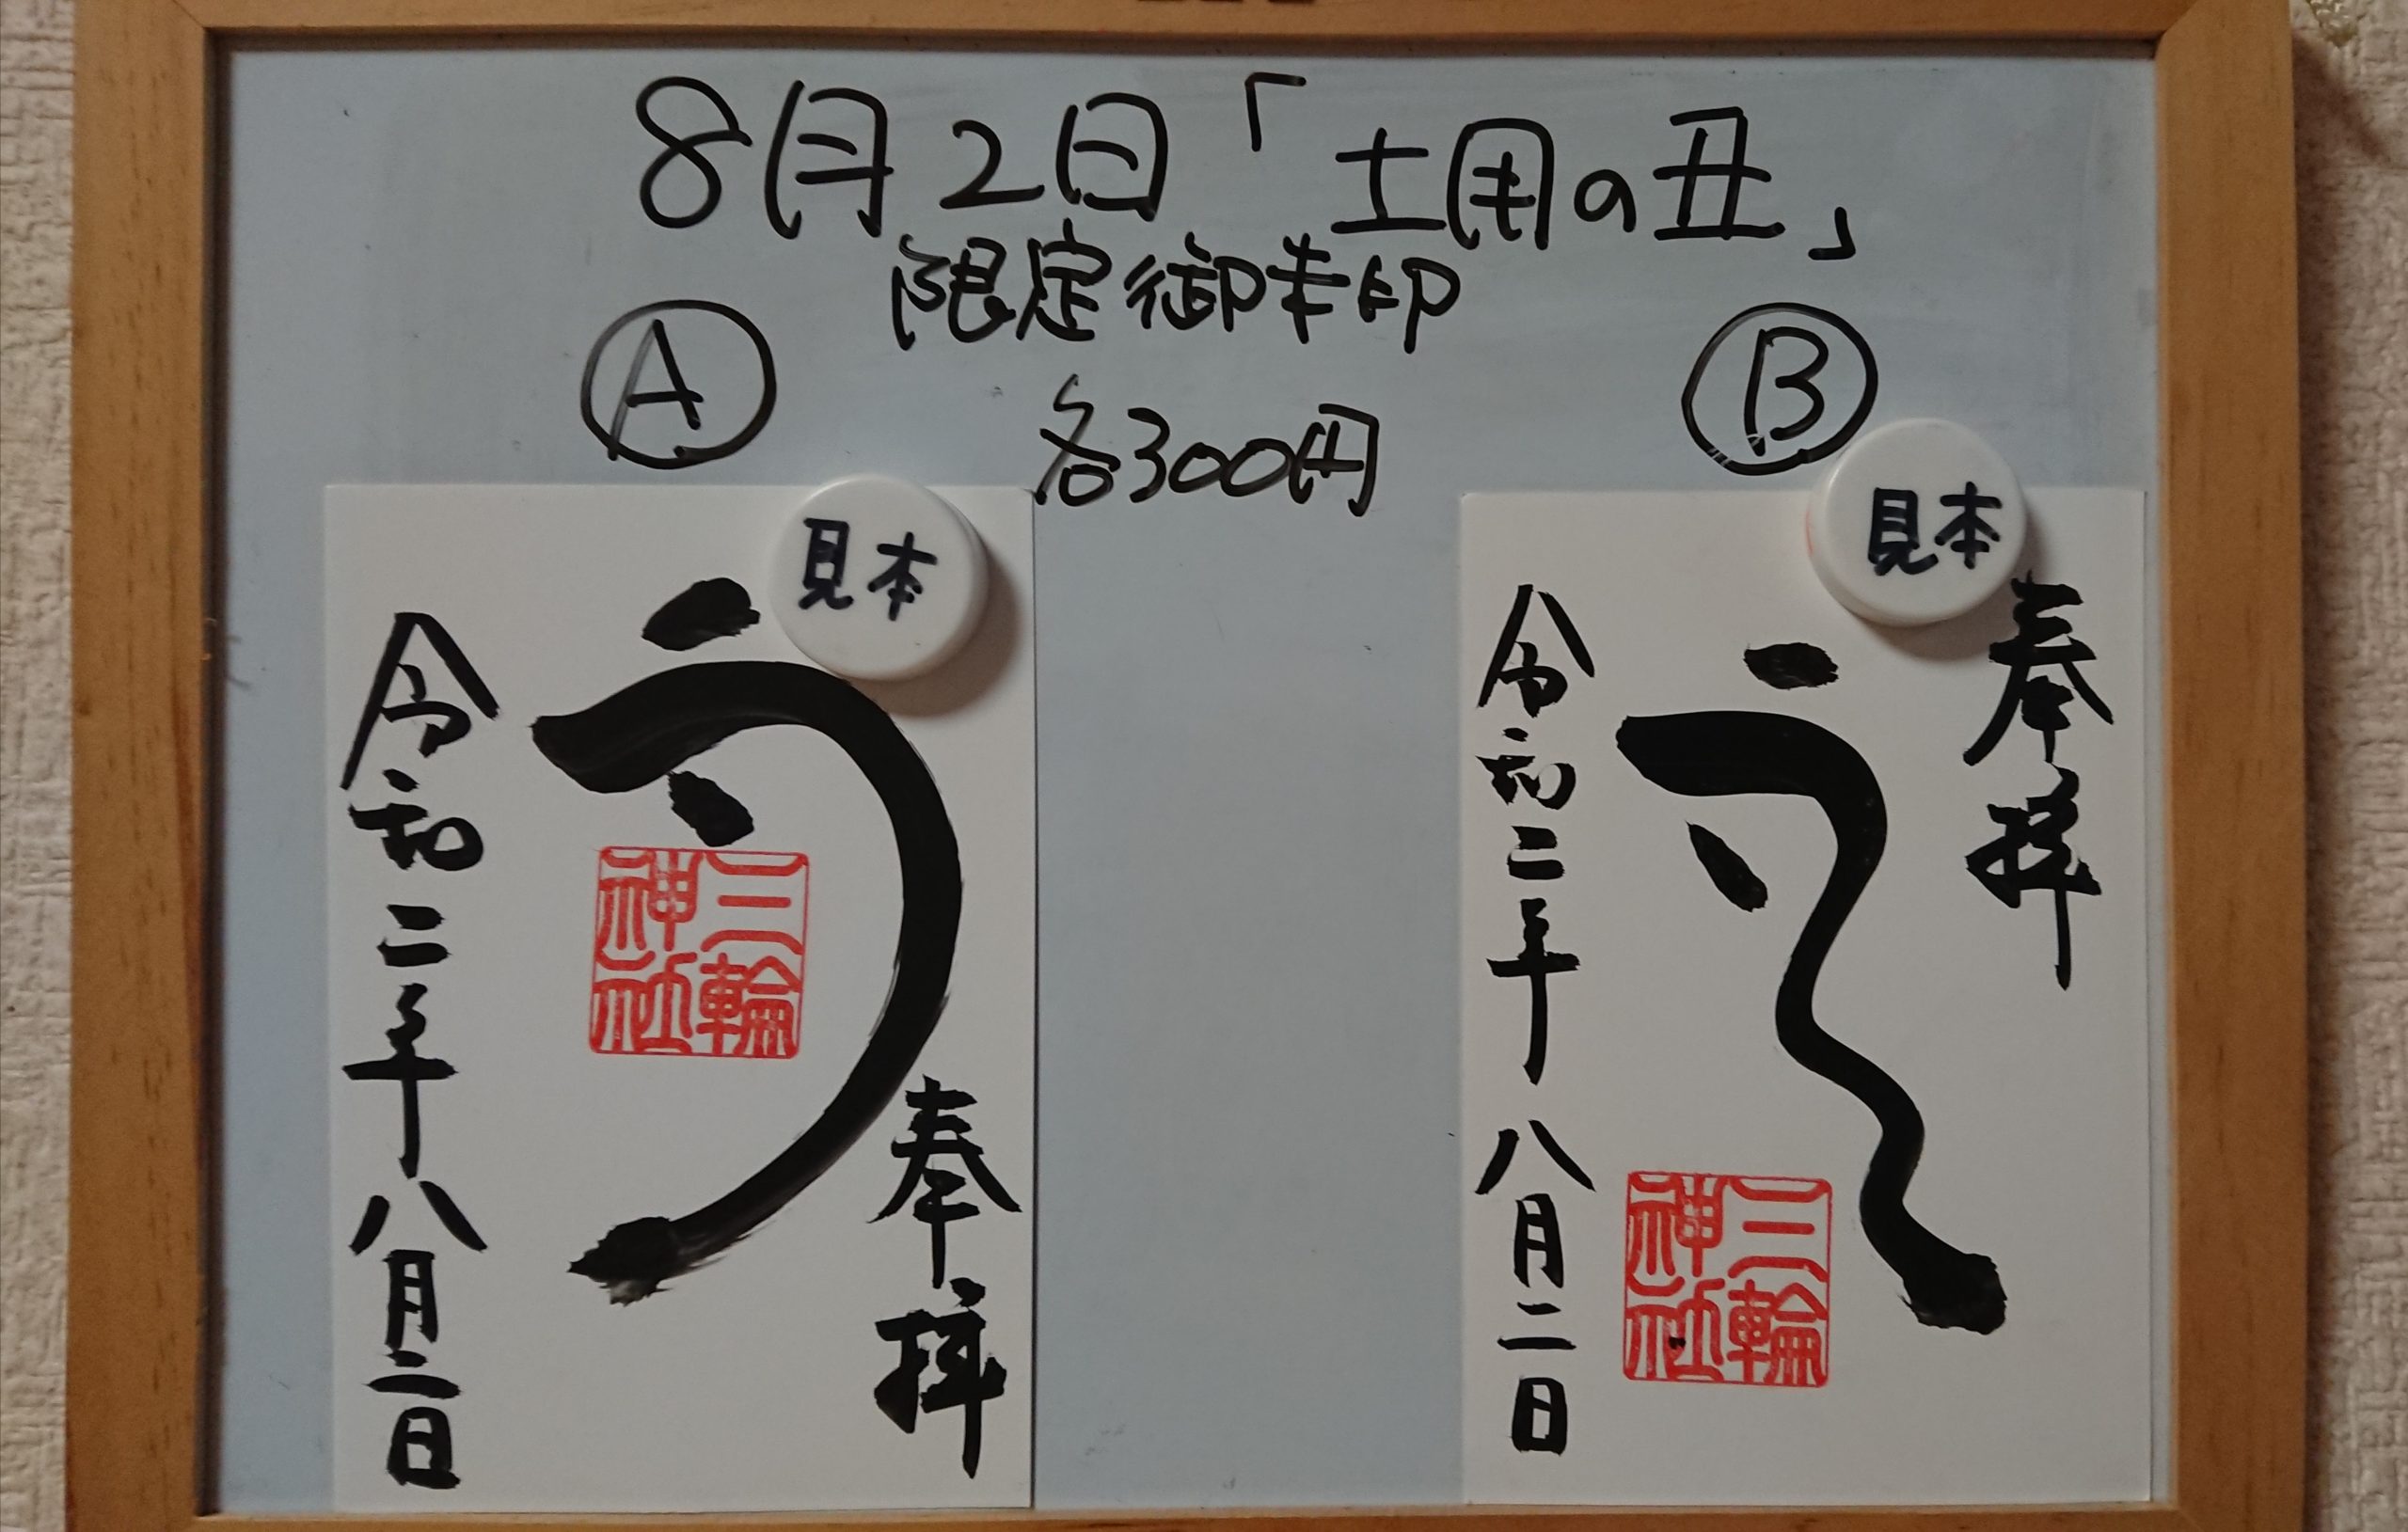 8月2日「土用の丑」
限定御朱印
Ⓐ
Ⓑ
各300円
見本
奉拝
う
三輪
神社
令和二年八月二日
見本
奉拝
う
三輪
神社
令和二年八月二日